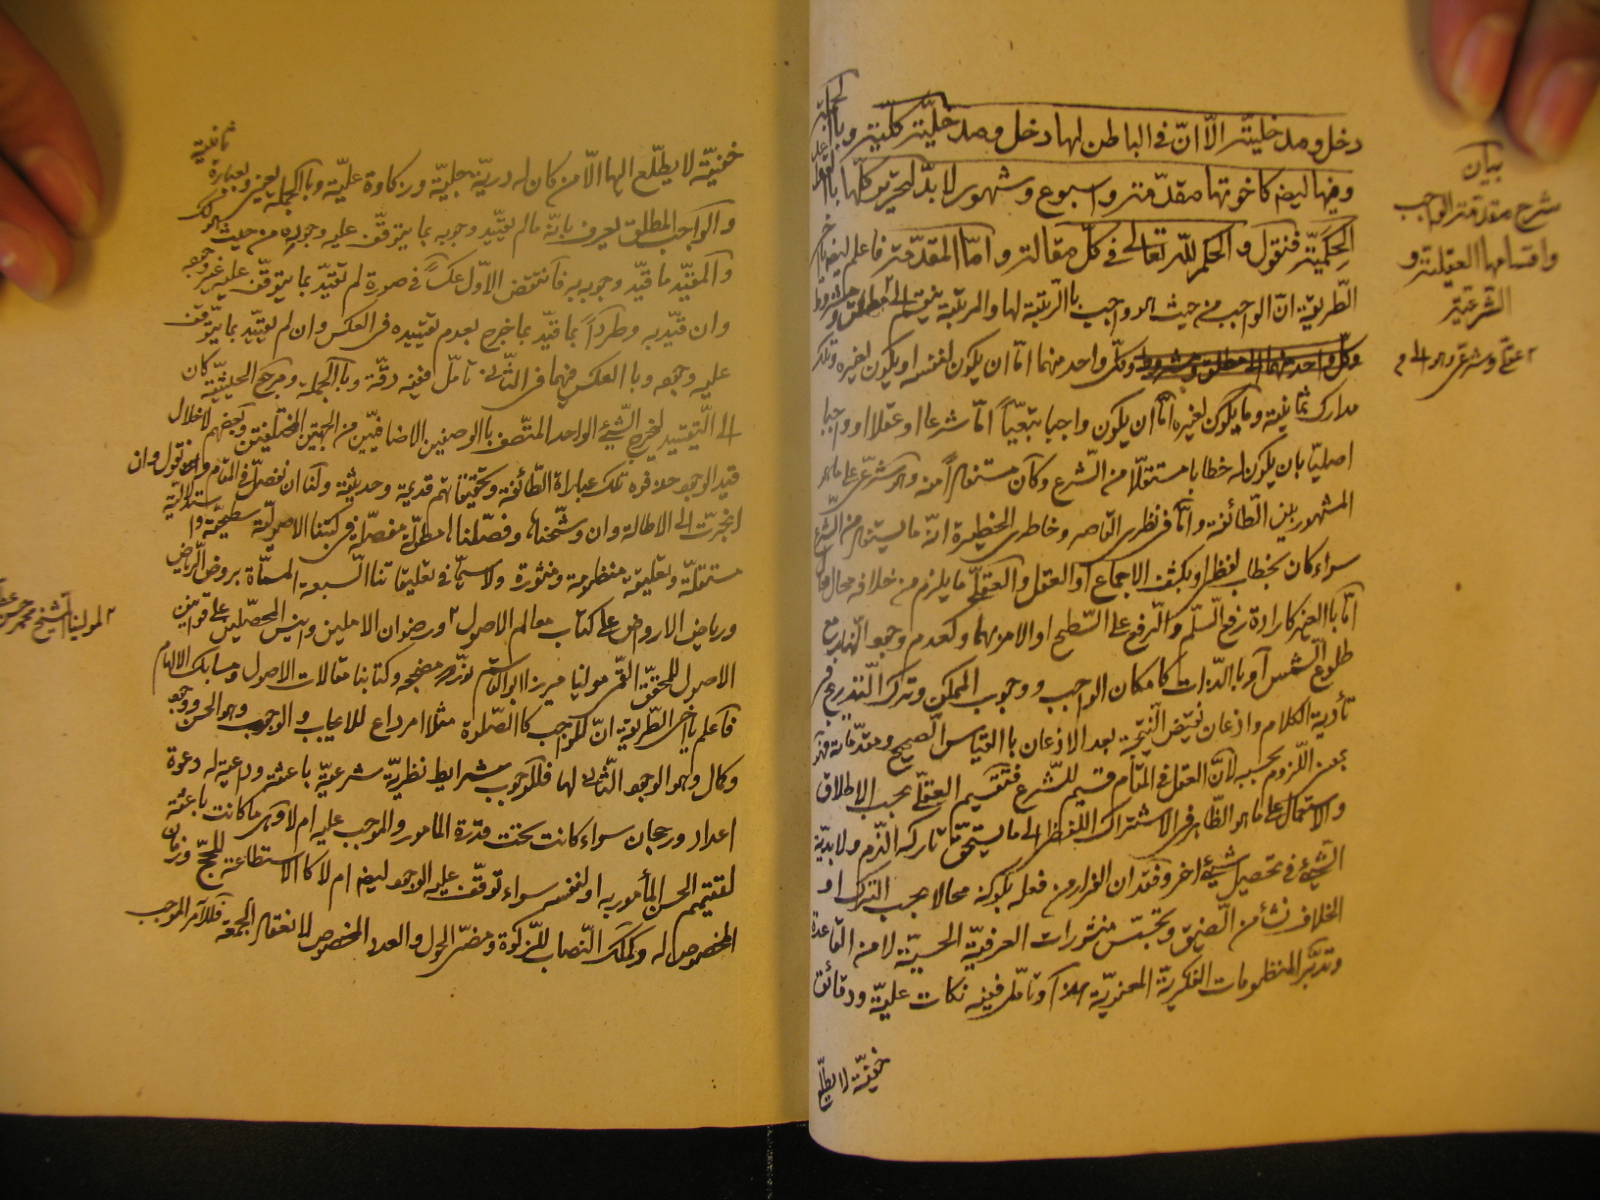 دخل ومدخليّته الّا انّ في الباطن لها دخل ومدخليّته كليّته وبالجملة
وفيها ايضه كاخوتها مقدّمته واسبوع وشهور لا بدّ لتحرير كلّها بالقول
الحكميّة فنقول والحكم للّه تعالى في كلّ مقالته وامّا المقدّمة فاعلم ايضه
الطّريقيّة انّ الواجب من حيث هو واجب بالرّتبة لها والمرتبة ينقسم الى مطلق ومشروط
وكلّ واحد منهما امّا ان يكون لنفسه او يكون لغيره وتلك
مدارك ثمانية وما يكون لغيره امّا ان يكون واجبا تبعيّاً امّا شرعا او عقلا او واجبا
اصليّا بان يكون له خطابا مستقلّا من الشّرع وكان مستفهم منه وهو شرعيّ على ما هو
المشهور بين الطّائفة وامّا في نظري القاصر وخاطري الخطيرة انّه ما يستفهم من الشّرع
سواء كان بخطاب لفظي او بكشف الاجماع او العقل والعقليّ ما يلزم من خلافه محال
امّا بالغير كارادة رفع السّلّم والرّفع على السّطح او الامر بهما وكعدم وجود النّهار مع
طلوع الشّمس او بالذّات كامكان الواجب ووجوب الممكن وترك التّدريج في
تأدية الكلام واذعان نقيض النّتيجة بعد الاذعان بالقياس الصّحيح ومقدّماته
بمعنى اللّزوم بحسبه لانّ العقل في المقام قسيم للشّرع فتقسيم العقليّ بحسب الاطلاق
والاستعمال على ما هو الظّاهر في الاشتراك اللّفظي الى ما يستحقّ تاركه الذّم ولا بدّيّة
الشّيء في تحصيل شيء اخر وفقدان الفرار من فعله بكونه محالا بحسب الترك او
الخلاف نشأ من الضيق وتجسّس منثورات العرفيّة الحسيّة لا من القاعدة
وتدبّر المنظومات الفكريّة المعنويّة هذا وتأمّل ففيه نكات عليّة ودقائق
خفيّة لا يطّلع
بيان
شرح مقدمة الواجب
واقسامها العقليته و
الشرعيّته
٢ عقلي وشرعي وهو الى م
خفيّة لا يطّلع اليها الّا من كان له دريّة جليّة وزكاوة عليّة وبالجملة
والواجب المطلق يعرف بانّه ما لم يقيّد وجوبه بما يتوقّف عليه وجوده من حيث هو كك
والمقيّد ما قيّد وجوبه به فانتقض الاوّل عكساً في صورة لم تقيّد بما يتوقّف عليه غير وجوده
وان قيّد به وطرداً بما قيّد بما خرج بعدم تقييده في العكس وان لم يقيّد بما يتوقّف
عليه وجوده وبالعكس فيهما في الثّاني تأمّل ففيه دقّة وبالجملة ومرجع الحيثيّة كان
الى التّقييد ليخرج الشّيء الواحد المتّصف بالوصفين الاضافيّين من الجهتين المختلفتين وبعضهم لاخلال
قيد الوجود حذفوه تلك عباراة الطّائفة وتحقيقاتهم قديمة وحديثة ولنا ان نفصّل في المقام ونقول وان
انجرّت الى الاطالة وان وشّحناها وفصّلناها مطوّلة مفصّلة في كتبنا الاصوليّة
مستقلّة وتعليقة منظومة ومنثورة ولا سيّما في تعليقاتنا السّبعة المسمّاة بروض الرّياض
ورياض الاروض على كتاب معالم الاصول ٢ ورضوان الاملين وانيس المحصّلين على قوانين
الاصول للمحقّق القمّي مولينا ميرزا ابوالقاسم نوّر مضجعه وكتابنا مقالات الاصول ومسالك الالهام
فاعلم يا اخي الطّريقيّة انّ للواجب كالصّلوة مثلا امر داع للايجاب والوجوب وهو الحسن ووجود
وكمال وهو الوجود الثّاني لها فللوجوب شرايط نظريّة شرعيّة باعثة وداعية له دعوة
اعداد ورجحان سواء كانت تحت قدرة المامور والموجب عليه ام لا وهي ما كانت باعثة
لتقييم الحسن المأمور به او لنفسه سواء توقّف عليه الوجود ايضه ام لا كالاستطاعة للحجّ وزمان
المخصوص له وكملك النّصاب للزّكوة ومضيّ الحول والعدد المخصوص لانعقاد الجمعة فللآمر الموجب
٢ لمولينا الشيخ محمد حسن